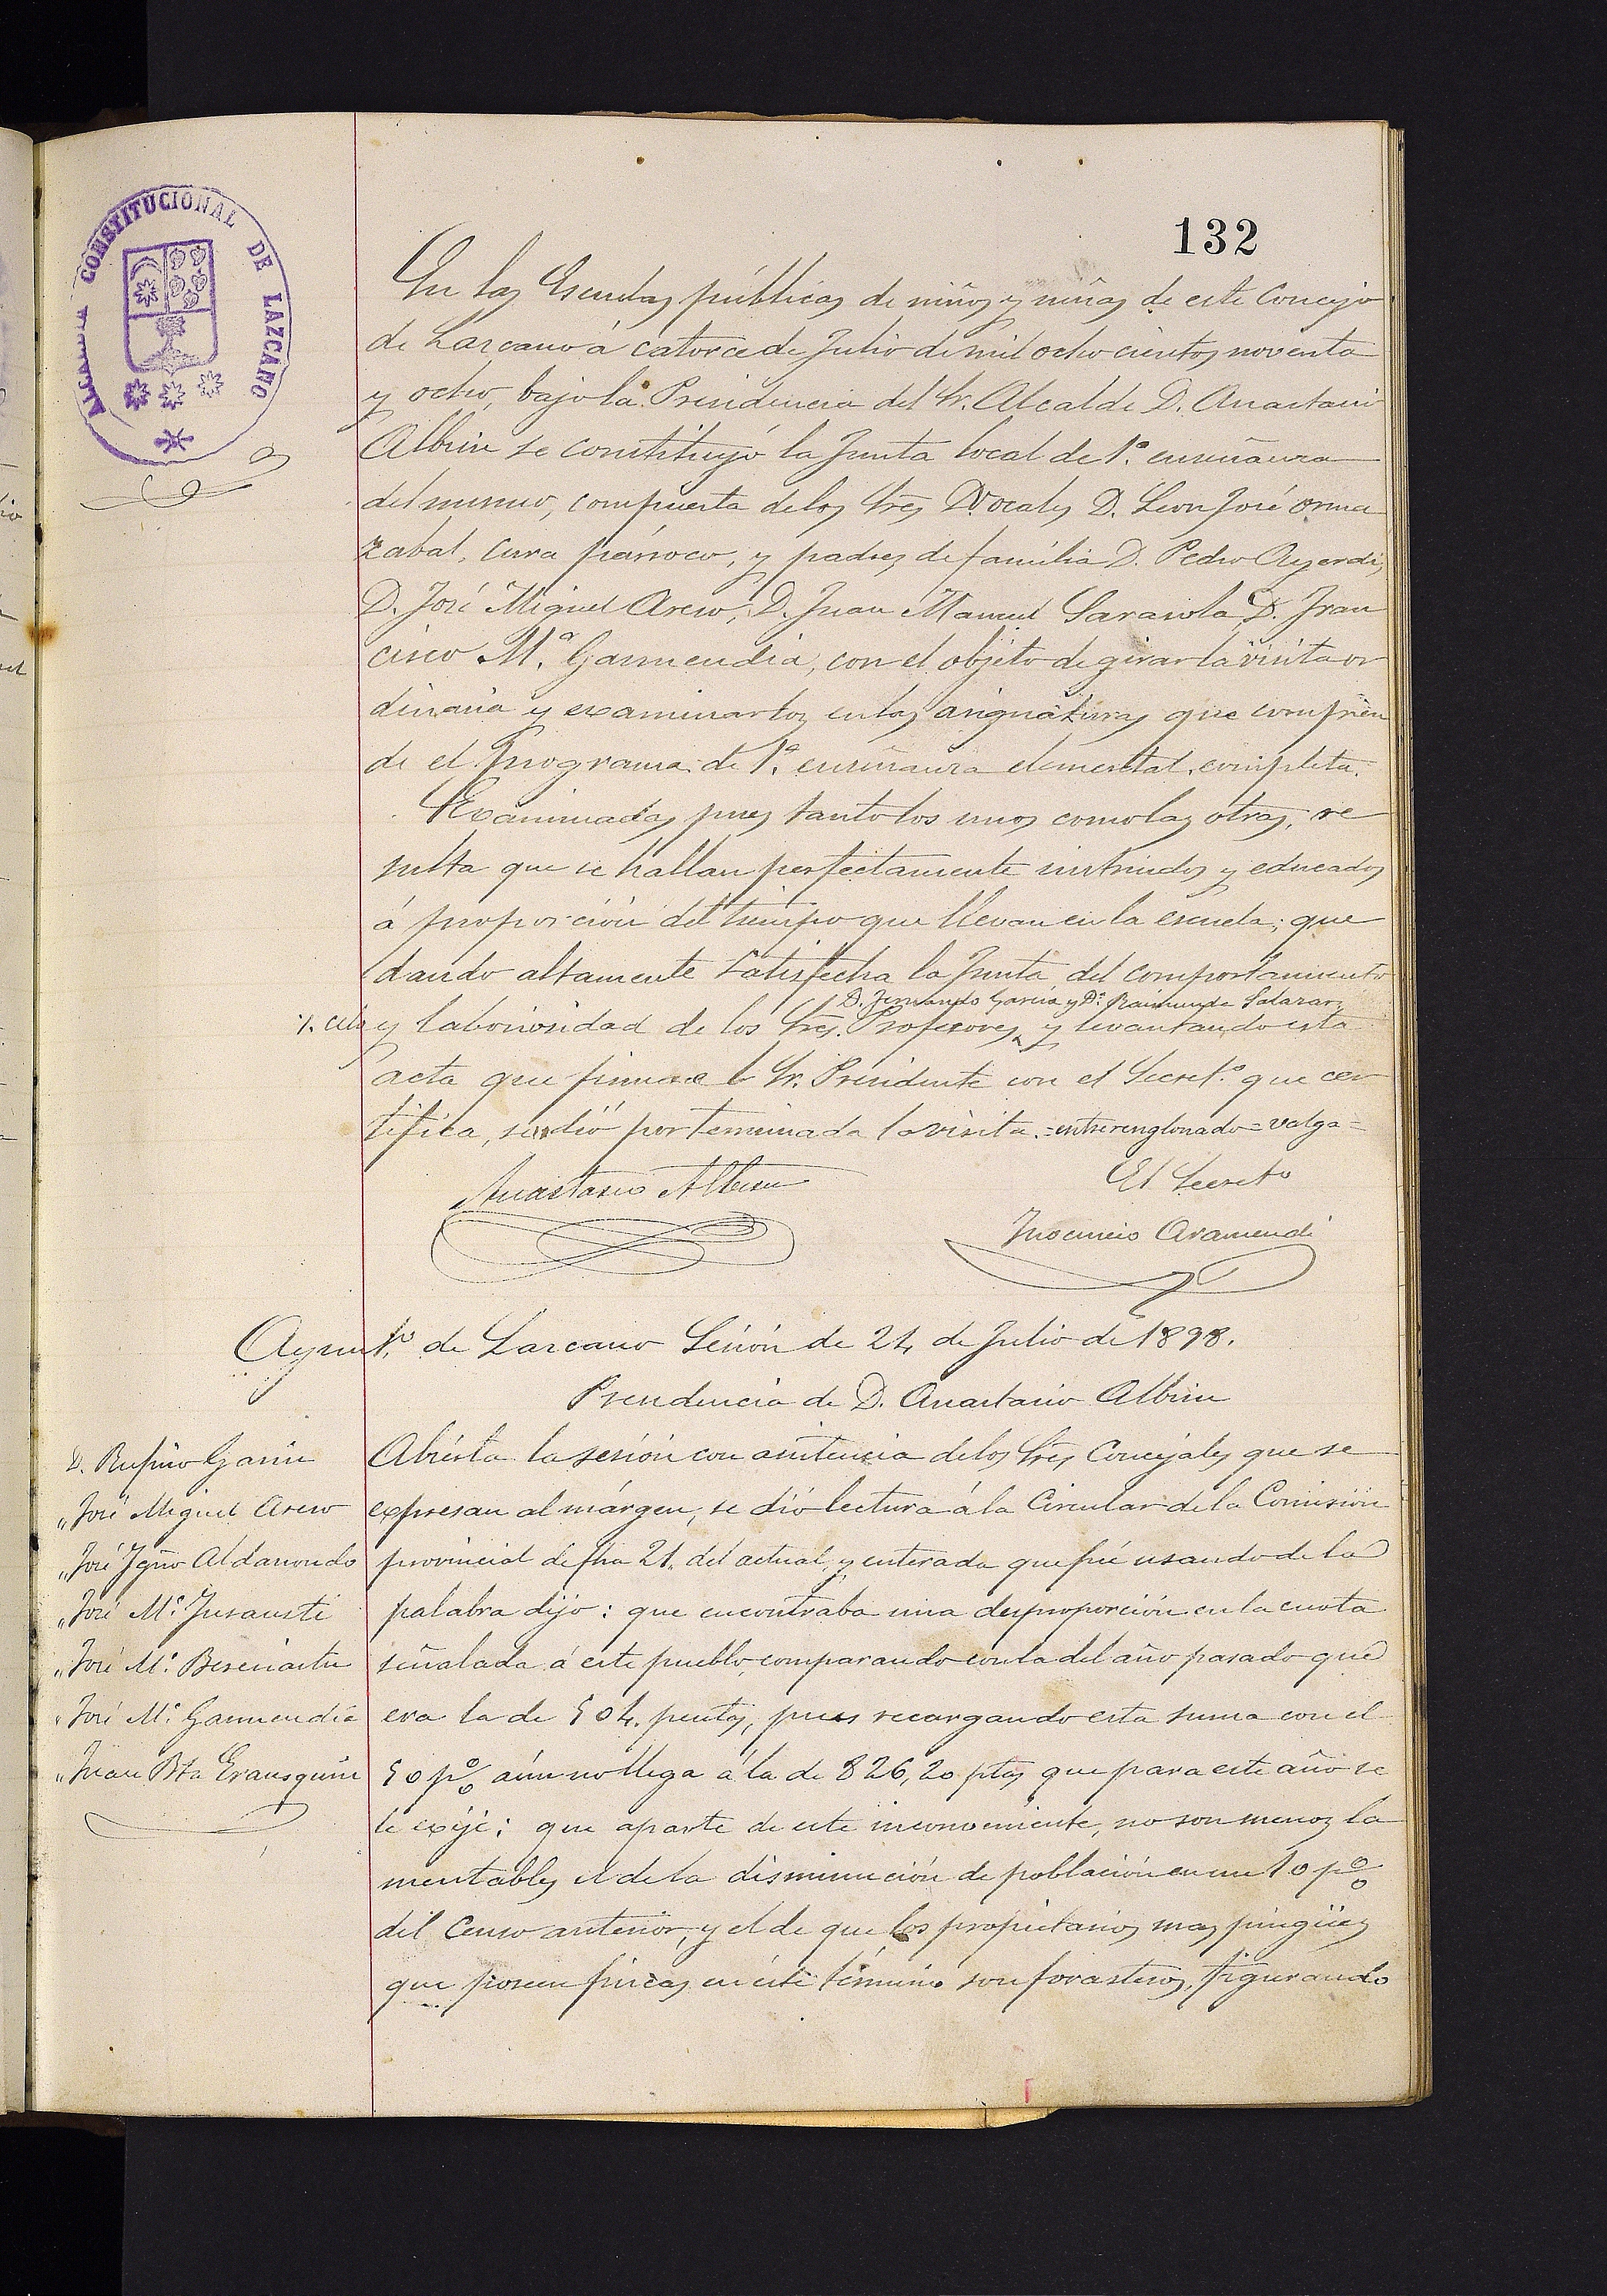 132
ALCALDIA CONSTITUCIONAL DE LAZCANO
En las Escuelas públicas de niños y niñas de este Concejo
de Lazcano á catorce de Julio de mil ocho cientos noventa
y ocho, bajo la Presidencia del Sr. Alcalde D. Anastasio
Albisu se constituyó la Junta local de 1ª. enseñanza
del mismo, compuesta de los Sres Vocales D. Leon José Orma
zabal, Cura párroco, y padres de familia D. Pedro Ayerdi,
D. José Miguel Areso, D. Juan Manuel Sarasola D. Fran
cisco Mª. Garmendia, con el objeto de girar la visita or
dinaria y examinarlos en las asignaturas que compren
de el programa de 1ª. enseñanza elemental completa.
Examinadas pues tanto los unos como las otras, re
sulta que se hallan perfectamente instruidos y educados
á proporción del tiempo que llevan en la escuela; que
dando altamente satisfecha la Junta del comportamiento
D. Fernando Garcia y Dª. Raimunda Salazar,
y laboriosidad de los Sres. Profesores y levantando esta
acta que firmara el Sr. Presidente con el Secretº. que cer
tifica, se dió por terminada la visita.=entrerenglonado=valga=
Anastasio Albisu
El Secretº
Inocencio Aramendi
Ayuntº. de Lazcano Sesión de 24 de Julio de 1898.
Presidencia de D. Anastasio Albisu
D. Rufino Garin
" José Miguel Areso
" José Ignº Aldanondo
" José Mª. Insausti
" José Mª. Bereciartu
" José Mª. Garmendia
" Juan Bta Erausquin
Abierta la sesión con asistencia de los Sres Concejales que se
expresan al márgen, se dió lectura á la Circular de la Comisión
provincial de fha 21. del actual, y enterada que fué usando de la
palabra dijo: que encontraba una desproporción en la cuota
señalada á este pueblo, comparando con la del año pasado que
era la de 504. pesetas, pues recargando esta suma con el
50 p% aún no llega á la de 826,20 ptas que para este año se
le exije; que aparte de este inconveniente, no son menos la
mentables el de la disminución de población en un 10 p%
del Censo anterior, y el de que los propietarios mas pingües
que poseen fincas en este término son forasteros, figurando